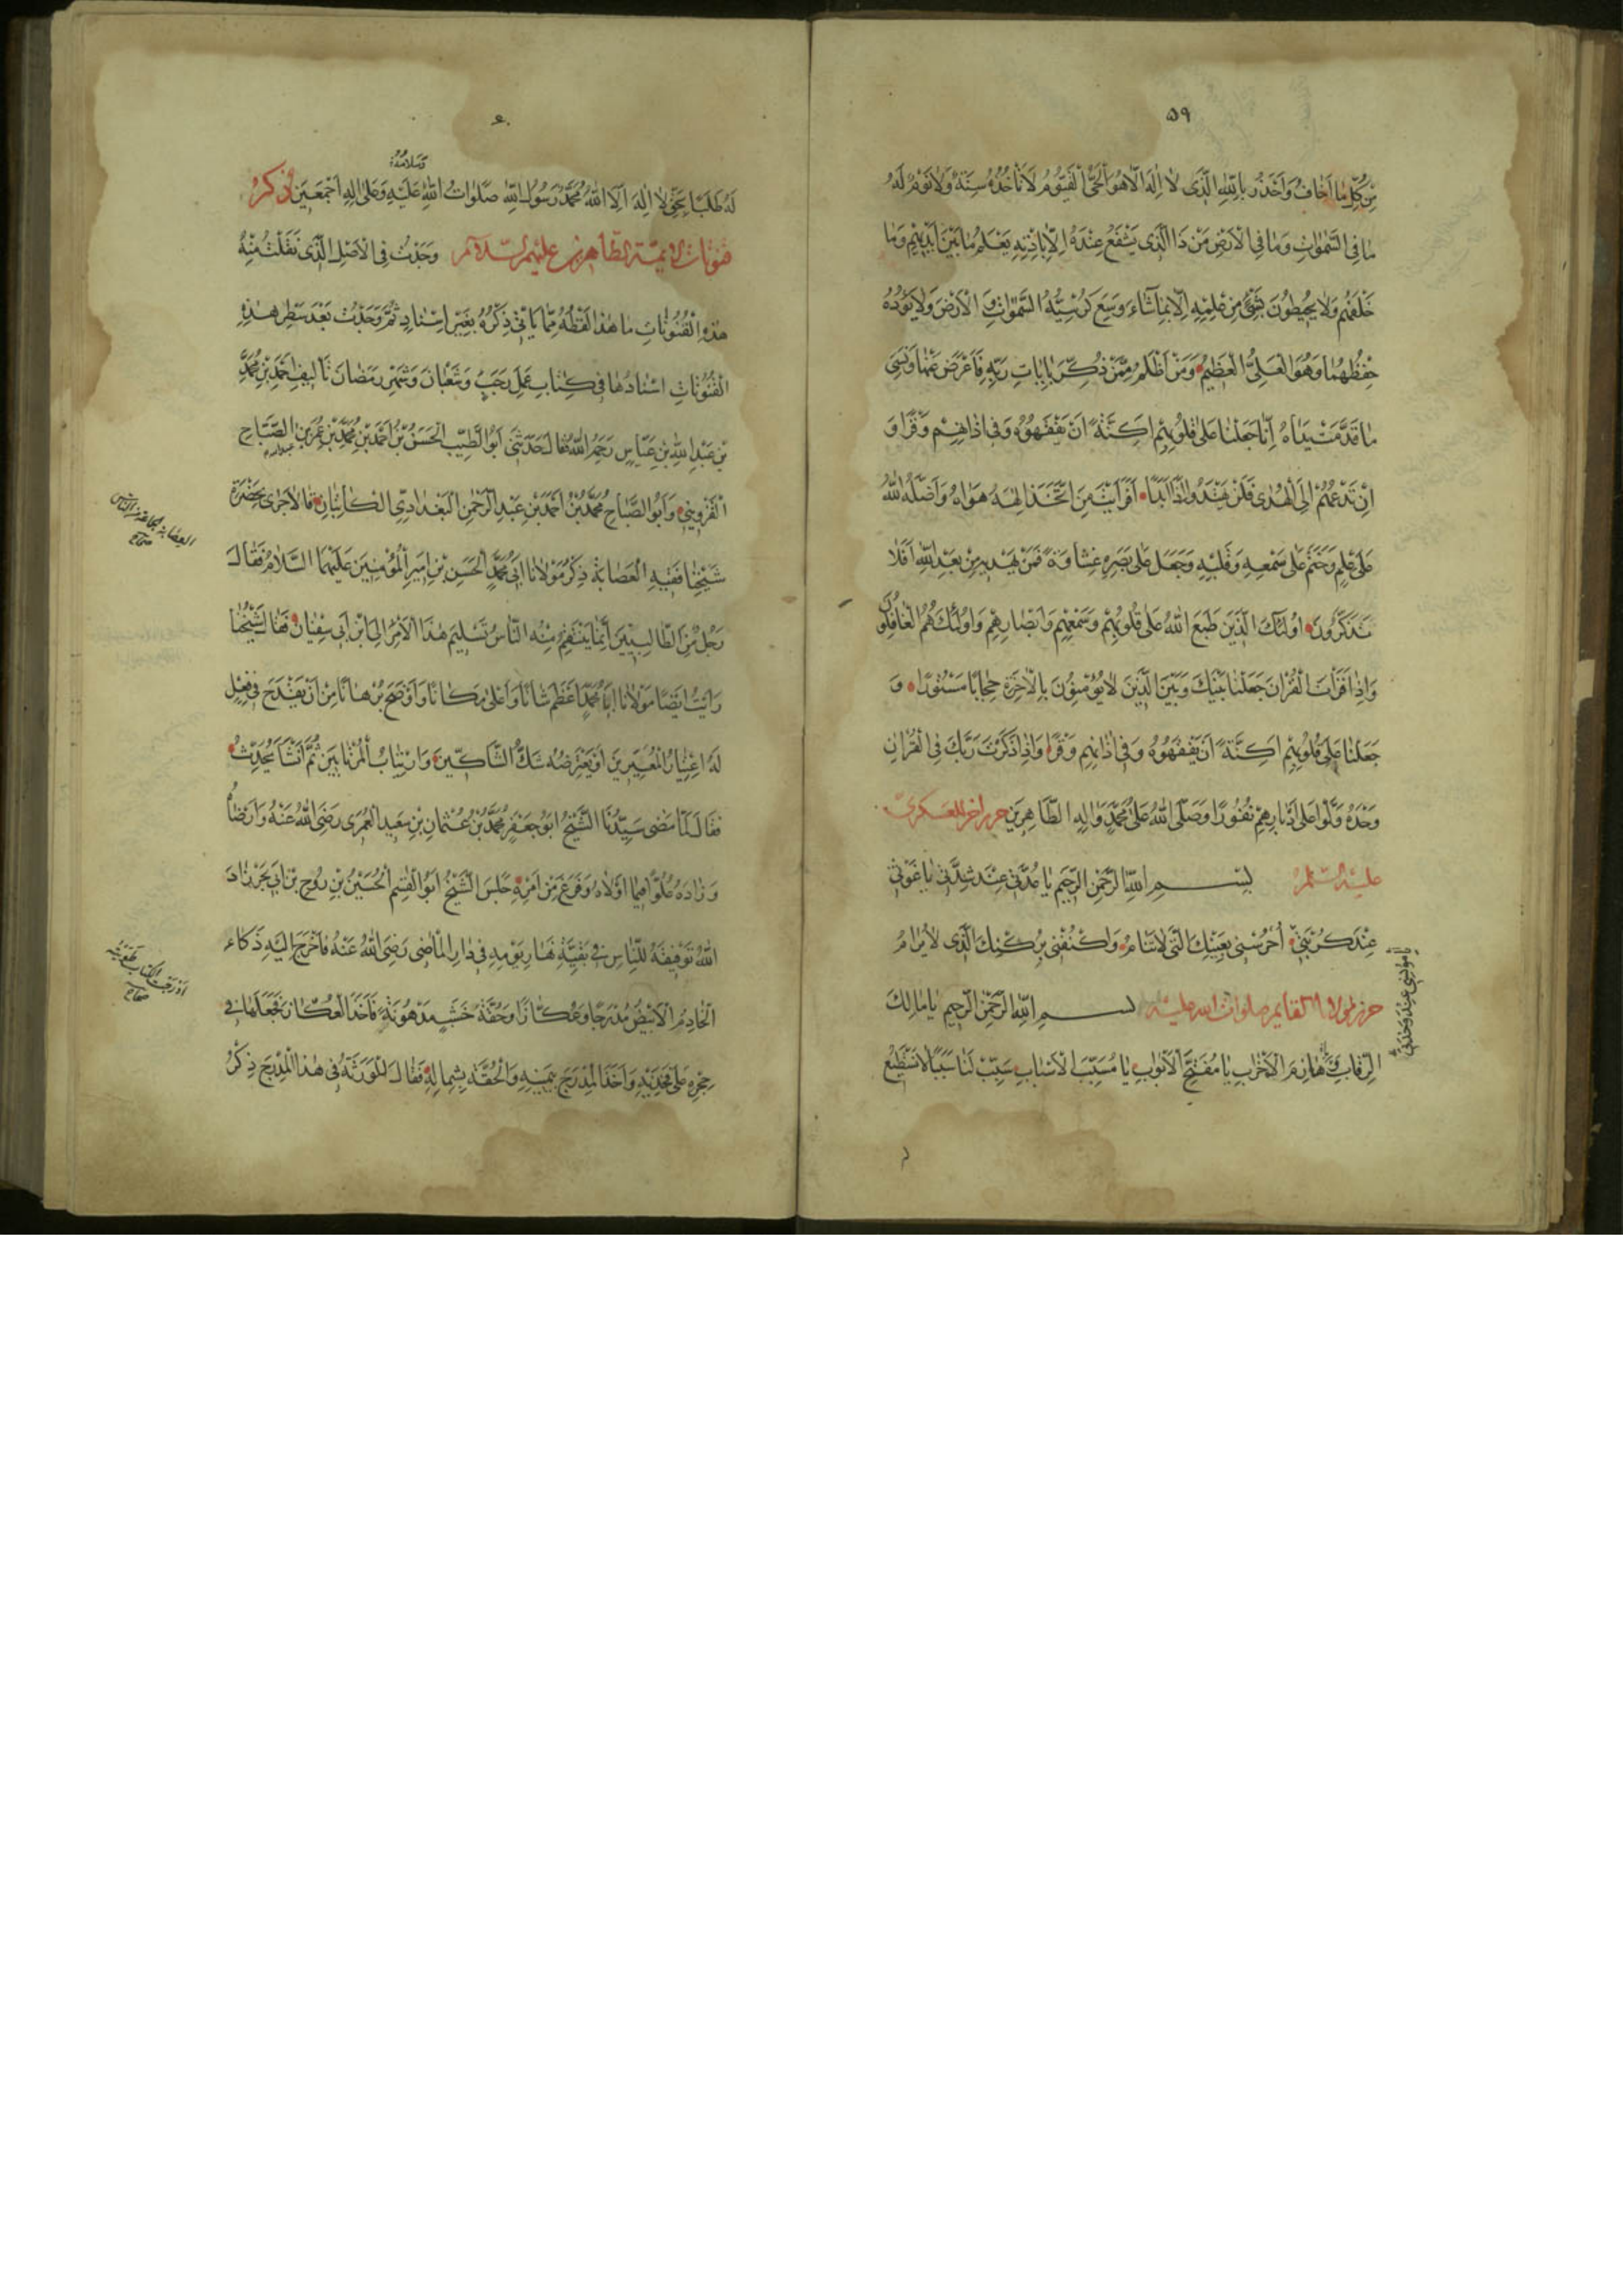 ٥٩
مِنْ كُلِّ مَا اَخَافُ وَاَحْذَرُ بِاللّٰهِ الَّذِى لَا اِلٰهَ اِلَّا هُوَ الْحَىُّ الْقَيُّومُ لَا تَأْخُذُهُ سِنَةٌ وَلَا نَوْمٌ لَهُ
مَا فِى السَّمٰوَاتِ وَمَا فِى الْاَرْضِ مَنْ ذَا الَّذِى يَشْفَعُ عِنْدَهُ اِلَّا بِاِذْنِهِ يَعْلَمُ مَا بَيْنَ اَيْدِيْهِمْ وَمَا
خَلْفَهُمْ وَلَا يُحِيطُونَ بِشَىْءٍ مِنْ عِلْمِهِ اِلَّا بِمَا شَاءَ وَسِعَ كُرْسِيُّهُ السَّمٰوَاتِ وَ الْاَرْضَ وَلَا يَؤُدُهُ
حِفْظُهُمَا وَهُوَ الْعَلِىُّ الْعَظِيمُ وَمَنْ اَظْلَمُ مِمَّنْ ذُكِّرَ بِاٰيَاتِ رَبِّهِ فَاَعْرَضَ عَنْهَا وَنَسِىَ
مَا قَدَّمَتْ يَدَاهُ اِنَّا جَعَلْنَا عَلٰى قُلُوبِهِمْ اَكِنَّةً اَنْ يَفْقَهُوهُ وَفِى اٰذَانِهِمْ وَقْرًا وَ
اِنْ تَدْعُهُمْ اِلَى الْهُدٰى فَلَنْ يَهْتَدُوا اِذًا اَبَدًا اَفَرَاَيْتَ مَنِ اتَّخَذَ اِلٰهَهُ هَوَاهُ وَاَضَلَّهُ اللّٰهُ
عَلٰى عِلْمٍ وَخَتَمَ عَلٰى سَمْعِهِ وَقَلْبِهِ وَجَعَلَ عَلٰى بَصَرِهِ غِشَاوَةً فَمَنْ يَهْدِيهِ مِنْ بَعْدِ اللّٰهِ اَفَلَا
تَذَكَّرُونَ اُولٰئِكَ الَّذِينَ طَبَعَ اللّٰهُ عَلٰى قُلُوبِهِمْ وَسَمْعِهِمْ وَاَبْصَارِهِمْ وَاُولٰئِكَ هُمُ الْغَافِلُونَ
وَاِذَا قَرَاْتَ الْقُرْاٰنَ جَعَلْنَا بَيْنَكَ وَبَيْنَ الَّذِينَ لَا يُؤْمِنُونَ بِالْاٰخِرَةِ حِجَابًا مَسْتُورًا وَ
جَعَلْنَا عَلٰى قُلُوبِهِمْ اَكِنَّةً اَنْ يَفْقَهُوهُ وَفِى اٰذَانِهِمْ وَقْرًا وَاِذَا ذَكَرْتَ رَبَّكَ فِى الْقُرْاٰنِ
وَحْدَهُ وَلَّوْا عَلٰى اَدْبَارِهِمْ نُفُورًا وَصَلَّى اللّٰهُ عَلٰى مُحَمَّدٍ وَاٰلِهِ الطَّاهِرِينَ حرز اخر للعسكرى
عليه السلام بِسْمِ اللّٰهِ الرَّحْمٰنِ الرَّحِيمِ يَا عُدَّتِى عِنْدَ شِدَّتِى يَا غَوْثِى
عِنْدَ كُرْبَتِى اُحْرُسْنِى بِعَيْنِكَ الَّتِى لَا تَنَامُ وَاكْنُفْنِى بِرُكْنِكَ الَّذِى لَا يُرَامُ
يَا مُونِسِى عِنْدَ وَحْدَتِى
حرز لمولانا القايم صلوات الله عليه بِسْمِ اللّٰهِ الرَّحْمٰنِ الرَّحِيمِ يَا مَالِكَ
الرِّقَابِ وَ هَازِمَ الْاَحْزَابِ يَا مُفَتِّحَ الْاَبْوَابِ يَا مُسَبِّبَ الْاَسْبَابِ سَبِّبْ لَنَا سَبَبًا لَا نَسْتَطِيعُ
٦٠
وَسَلَامُهُ
لَهُ طَلَبًا بِحَقِّ لَا اِلٰهَ اِلَّا اللّٰهُ مُحَمَّدٌ رَسُولُ اللّٰهِ صَلَوَاتُ اللّٰهِ عَلَيْهِ وَعَلٰى اٰلِهِ اَجْمَعِينَ ذكر
قنوتات الائمة الطاهرين عليهم السلام وَجَدْتُ فِى الْاَصْلِ الَّذِى نَقَلْتُ مِنْهُ
هٰذِهِ الْقُنُوتَاتِ مَا هٰذَا لَفْظُهُ مِمَّا يَاْتِى ذِكْرُهُ بِغَيْرِ اِسْنَادٍ ثُمَّ وَجَدْتُ بَعْدَ سَطْرِ هٰذِهِ
الْقُنُوتَاتِ اِسْنَادَهَا فِى كِتَابِ عَمَلِ رَجَبٍ وَشَعْبَانَ وَشَهْرِ رَمَضَانَ تَاْلِيفِ اَحْمَدَ بْنِ مُحَمَّدِ
بْنِ عَبْدِ اللّٰهِ بْنِ عَبَّاسٍ رَحِمَهُ اللّٰهُ فَقَالَ حَدَّثَنِى اَبُو الطَّيِّبِ الْحَسَنُ بْنُ اَحْمَدَ بْنِ مُحَمَّدِ بْنِ عُمَرَ بْنِ الصَّبَّاحِ
الْقَزْوِينِىُّ وَاَبُو الصَّبَّاحِ مُحَمَّدُ بْنُ اَحْمَدَ بْنِ عَبْدِ الرَّحْمٰنِ الْبَغْدَادِىُّ الْكَاتِبَانِ قَالَا جَرٰى بِحَضْرَةِ
العصابة الجماعة من الناس
صحاح
شَيْخِنَا فَقِيهِ الْعِصَابَةِ ذِكْرُ مَوْلَانَا اَبِى مُحَمَّدٍ الْحَسَنِ بْنِ اَمِيرِ الْمُؤْمِنِينَ عَلَيْهِمَا السَّلَامُ فَقَالَ
رَجُلٌ مِنَ الطَّالِبِيِّينَ اِنَّمَا يَنْتَقِمُ مِنْهُ النَّاسُ تَسْلِيمَ هٰذَا الْاَمْرِ اِلَى ابْنِ اَبِى سُفْيَانَ فَقَالَ شَيْخُنَا
رَاَيْتُ اَيْضًا مَوْلَانَا اَبَا مُحَمَّدٍ اَعْظَمَ شَاْنًا وَاَعْلٰى مَكَانًا وَاَوْضَحَ بُرْهَانًا مِنْ اَنْ يَقْدَحَ فِى فِعْلٍ
لَهُ اعْتِبَارُ الْمُعْتَبِرِينَ اَوْ يَعْتَرِضَهُ شَكُّ الشَّاكِّينَ وَارْتِيَابُ الْمُرْتَابِينَ ثُمَّ اَنْشَاَ يُحَدِّثُ
فَقَالَ لَمَّا مَضٰى سَيِّدُنَا الشَّيْخُ اَبُو جَعْفَرٍ مُحَمَّدُ بْنُ عُثْمَانَ بْنِ سَعِيدٍ الْعُمَرِى رَضِىَ اللّٰهُ عَنْهُ وَاَرْضَاهُ
وَزَادَهُ عُلُوًّا فِيمَا اَوْلَاهُ وَفَرَغَ مِنْ اَمْرِهِ جَلَسَ الشَّيْخُ اَبُو الْقٰسِمِ الْحُسَيْنُ بْنُ رُوحِ بْنِ اَبِى بَحْرٍ زَادَ
اللّٰهُ تَوْفِيقَهُ لِلنَّاسِ فِى بَقِيَّةِ نَهَارِ يَوْمِهِ فِى دَارِ الْمَاضِى رَضِىَ اللّٰهُ عَنْهُ فَاَخْرَجَ اِلَيْهِ ذَكَاءُ
ادرجت الكتاب طويته
صحاح
الْخَادِمُ الْاَبْيَضُ مُدْرَجًا وَعُكَّازًا وَحُقَّةَ خَشَبٍ مَدْهُونَةً فَاَخَذَ الْعُكَّازَ فَجَعَلَهَا فِى
حِجْرِهِ عَلٰى فَخِذَيْهِ وَاَخَذَ الْمُدْرَجَ بِيَمِينِهِ وَالْحُقَّةَ بِشِمَالِهِ فَقَالَ لِلْوَرَثَةِ فِى هٰذَا الْمُدْرَجِ ذِكْرُ